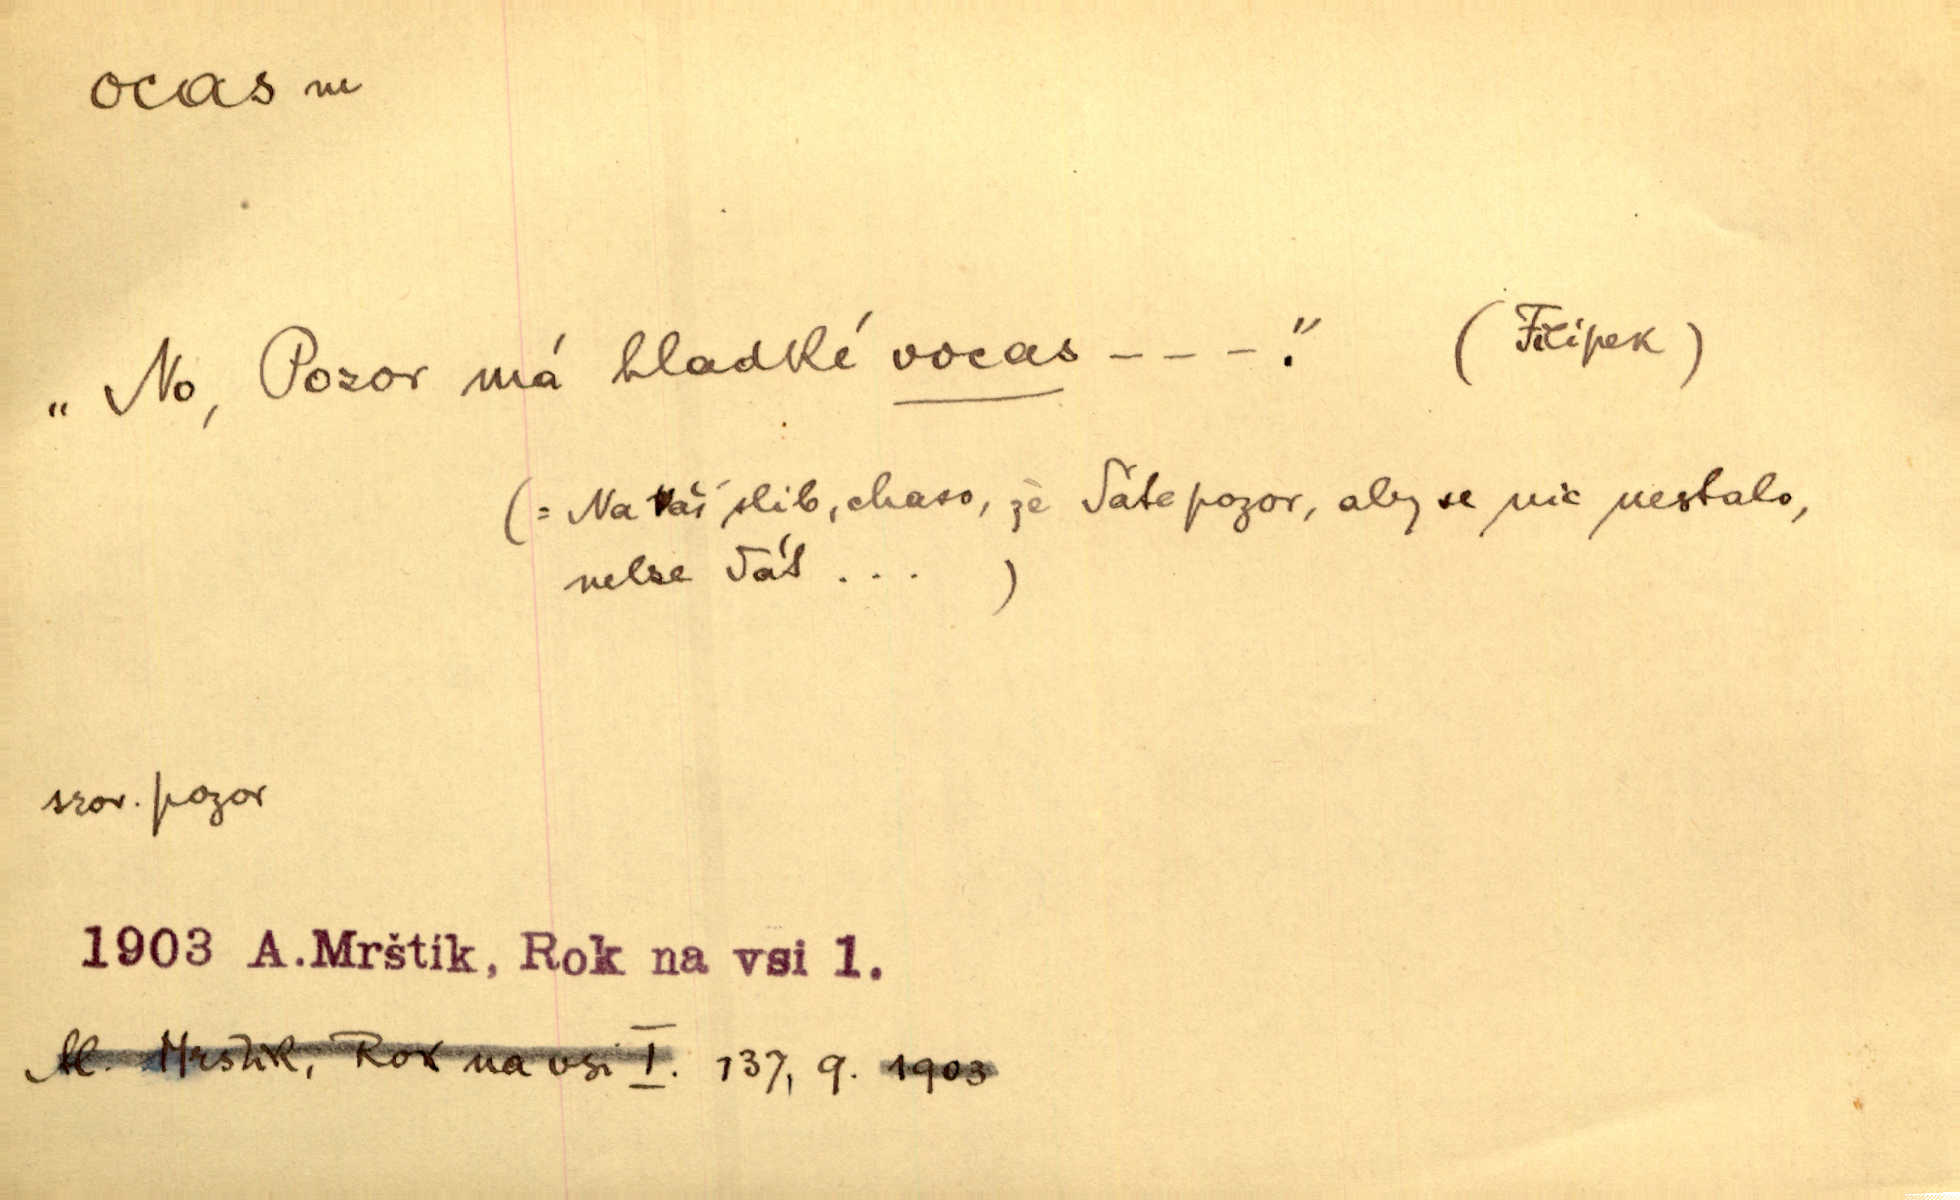 ocas m
„No, Pozor má hladké vocas - - - ." (Filípek)
(= Na váš slib, chaso, že dáte pozor, aby se nic nestalo,
nelze dát . . . )
srov. pozor
1903 A.Mrštík, Rok na vsi 1.
M. Mrštík, Rok na vsi I. 137, 9. 1903